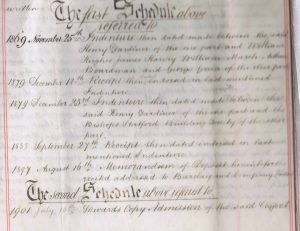 written
The first Schedule above
referred to
1869 November 25th Indenture then dated made between the said
Henry Gardiner of the one part and William
Hughes James Harvey William Marsh Arthur
Boardman and George Young of the other part
1879 December 12th Receipt then indorsed on last mentioned
Indenture
1879 December 25th Indenture then dated made between the
said Henry Gardiner of the one part and the
Bishops Stortford Building Society of the other
part.
1885 September 27th Receipt then dated indorsed on last
mentioned Indenture
1897 August 16th Memorandum of Deposit hereinbefore
recited addressed to Barclay and Company Limited
The Second Schedule above referred to
1901 July 16th Stewards Copy Admission of the said